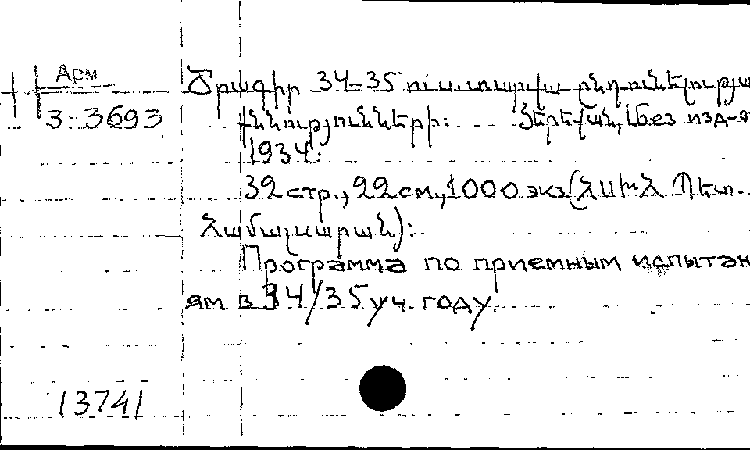 Арм
3-3693
Ծրագիր 34-35 ուս. տարվա ընդունելության
քննությունների: Յերեվան, [без изд-в
1934:
32 стр., 22 см., 1000 экз. (ՀՍԽՀ Պետ.
Համալսարան):
Программа по приемным испытан
ям в 34/35 уч. году
13741